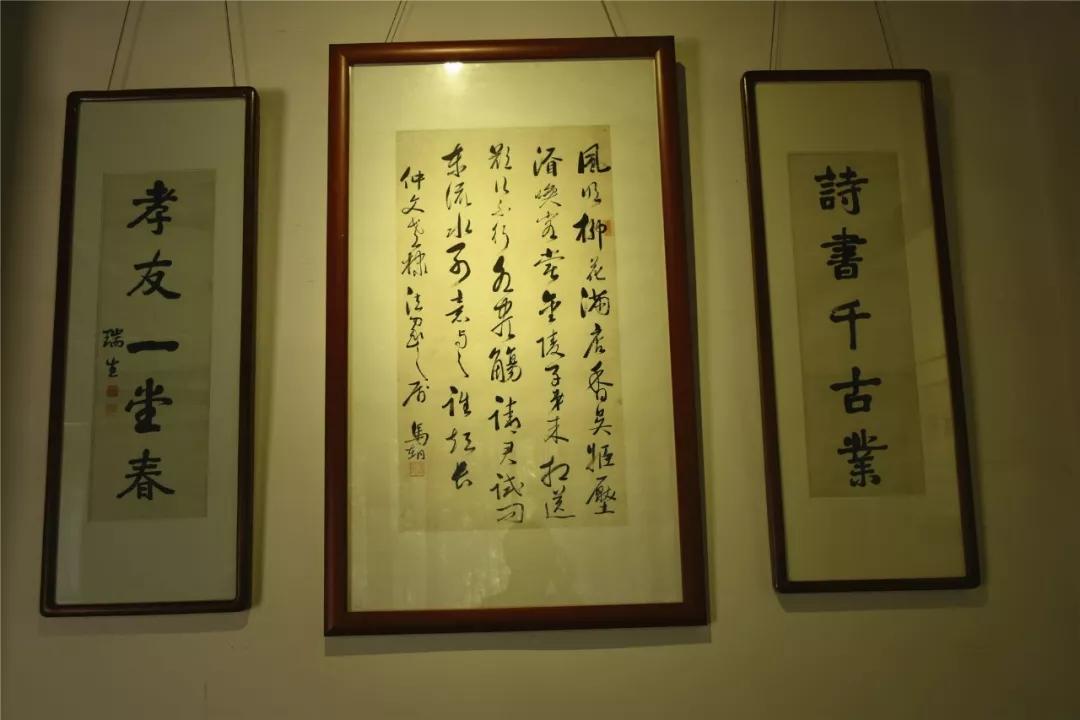 詩書千古業
風吹柳花滿店香吳姬壓
酒喚客嘗金陵子弟來相送
欲行不行各盡觴請君試問
東流水別意與之誰短長
仲文老棣法家之屬 馬
孝友一堂春
瑞生